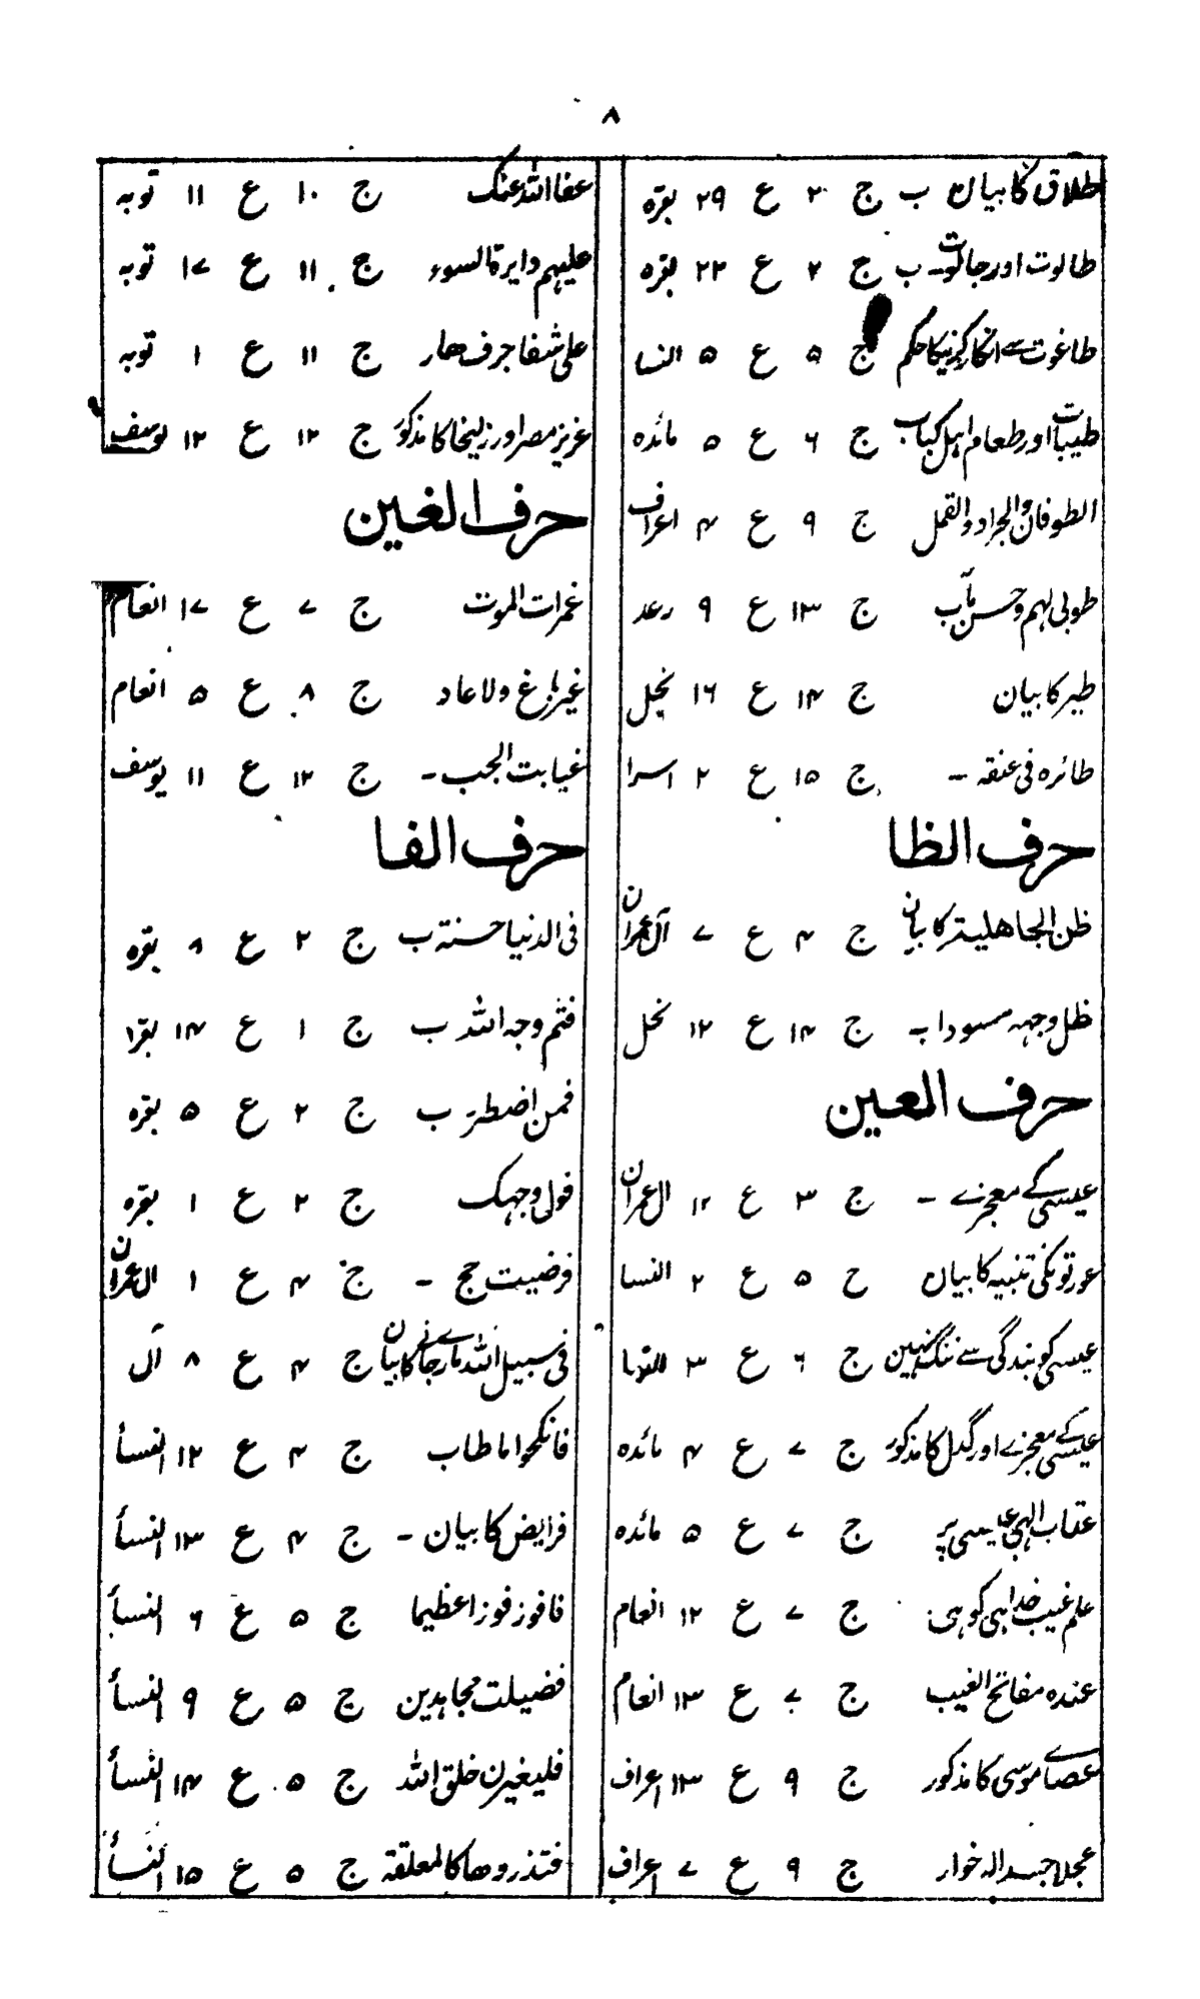 ۸
طلاق کا بیان ب ج ۲ ع ۲۹ بقرہ
طالوت اور جالوت ب ج ۲ ع ۲۲ بقرہ
طاغوت سے انکار کرنیکا حکم ج ۵ ع ۵ النسا
طیبات اور طعام اہل کتاب ج ۶ ع ۵ مائدہ
الطوفان والجراد والقمل ج ۹ ع ۴ اعراف
طوبی لہم وحسن مآب ج ۱۳ ع ۹ رعد
طیر کا بیان ج ۱۴ ع ۱۶ نحل
طائرہ فی عنقہ - ج ۱۵ ع ۲ اسرا
حرف الظا
ظن الجاھلیۃ کا بیان ج ۴ ع ۷ آل عمران
ظل وجہہ مسودا ب ج ۱۴ ع ۱۲ نحل
حرف العین
عیسی کے معجزے - ج ۳ ع ۱۲ ال عمران
عورتونکی تنبیہ کا بیان ح ۵ ع ۲ النسا
عیسی کو بندگی سے ننگ نہین ج ۶ ع ۳
عیسی کے معجزے اور گہل کا مذکور ج ۷ ع ۴ مائدہ
عتاب الہی عیسی پر ج ۷ ع ۵ مائدہ
علم غیب خدا ہی کو ہی ج ۷ ع ۱۲ انعام
عندہ مفاتح الغیب ج ۷ ع ۱۳ انعام
عصاے موسی کا مذکور ج ۹ ع ۱۳ اعراف
عجلا جسدا لہ خوار ج ۹ ع ۷ اعراف
عفا اللہ عنک ج ۱۰ ع ۱۱ توبہ
علیہم دایرۃ السوء ج ۱۱ ع ۱۷ توبہ
علی شفا جرف ھار ج ۱۱ ع ۱ توبہ
عزیز مصر اور زلیخا کا مذکور ج ۱۲ ع ۱۲ یوسف
حرف الغین
غمرات الموت ج ۷ ع ۱۷ انعام
غیر باغ ولا عاد ج ۸ ع ۵ انعام
غیابت الجب - ج ۱۲ ع ۱۱ یوسف
حرف الفا
فی الدنیا حسنۃ ب ج ۲ ع ۸ بقرہ
فثم وجہ اللہ ب ج ۱ ع ۱۴ بقرا
فمن اضطر ب ج ۲ ع ۵ بقرہ
فول وجہک ج ۲ ع ۱ بقرہ
فرضیت حج - ج ۴ ع ۱ ال عمران
فی سبیل اللہ مارے جانے کا بیان ج ۴ ع ۸ آل
فانکحوا ما طاب ج ۴ ع ۱۲ النسأ
فرایض کا بیان - ج ۴ ع ۱۳ النسأ
فافوز فوزا عظیما ج ۵ ع ۶ النسأ
فضیلت مجاہدین ج ۵ ع ۹ النسأ
فلیغیرن خلق اللہ ج ۵ ع ۱۴ النسأ
فتذروھا کالمعلقۃ ج ۵ ع ۱۵ النسأ